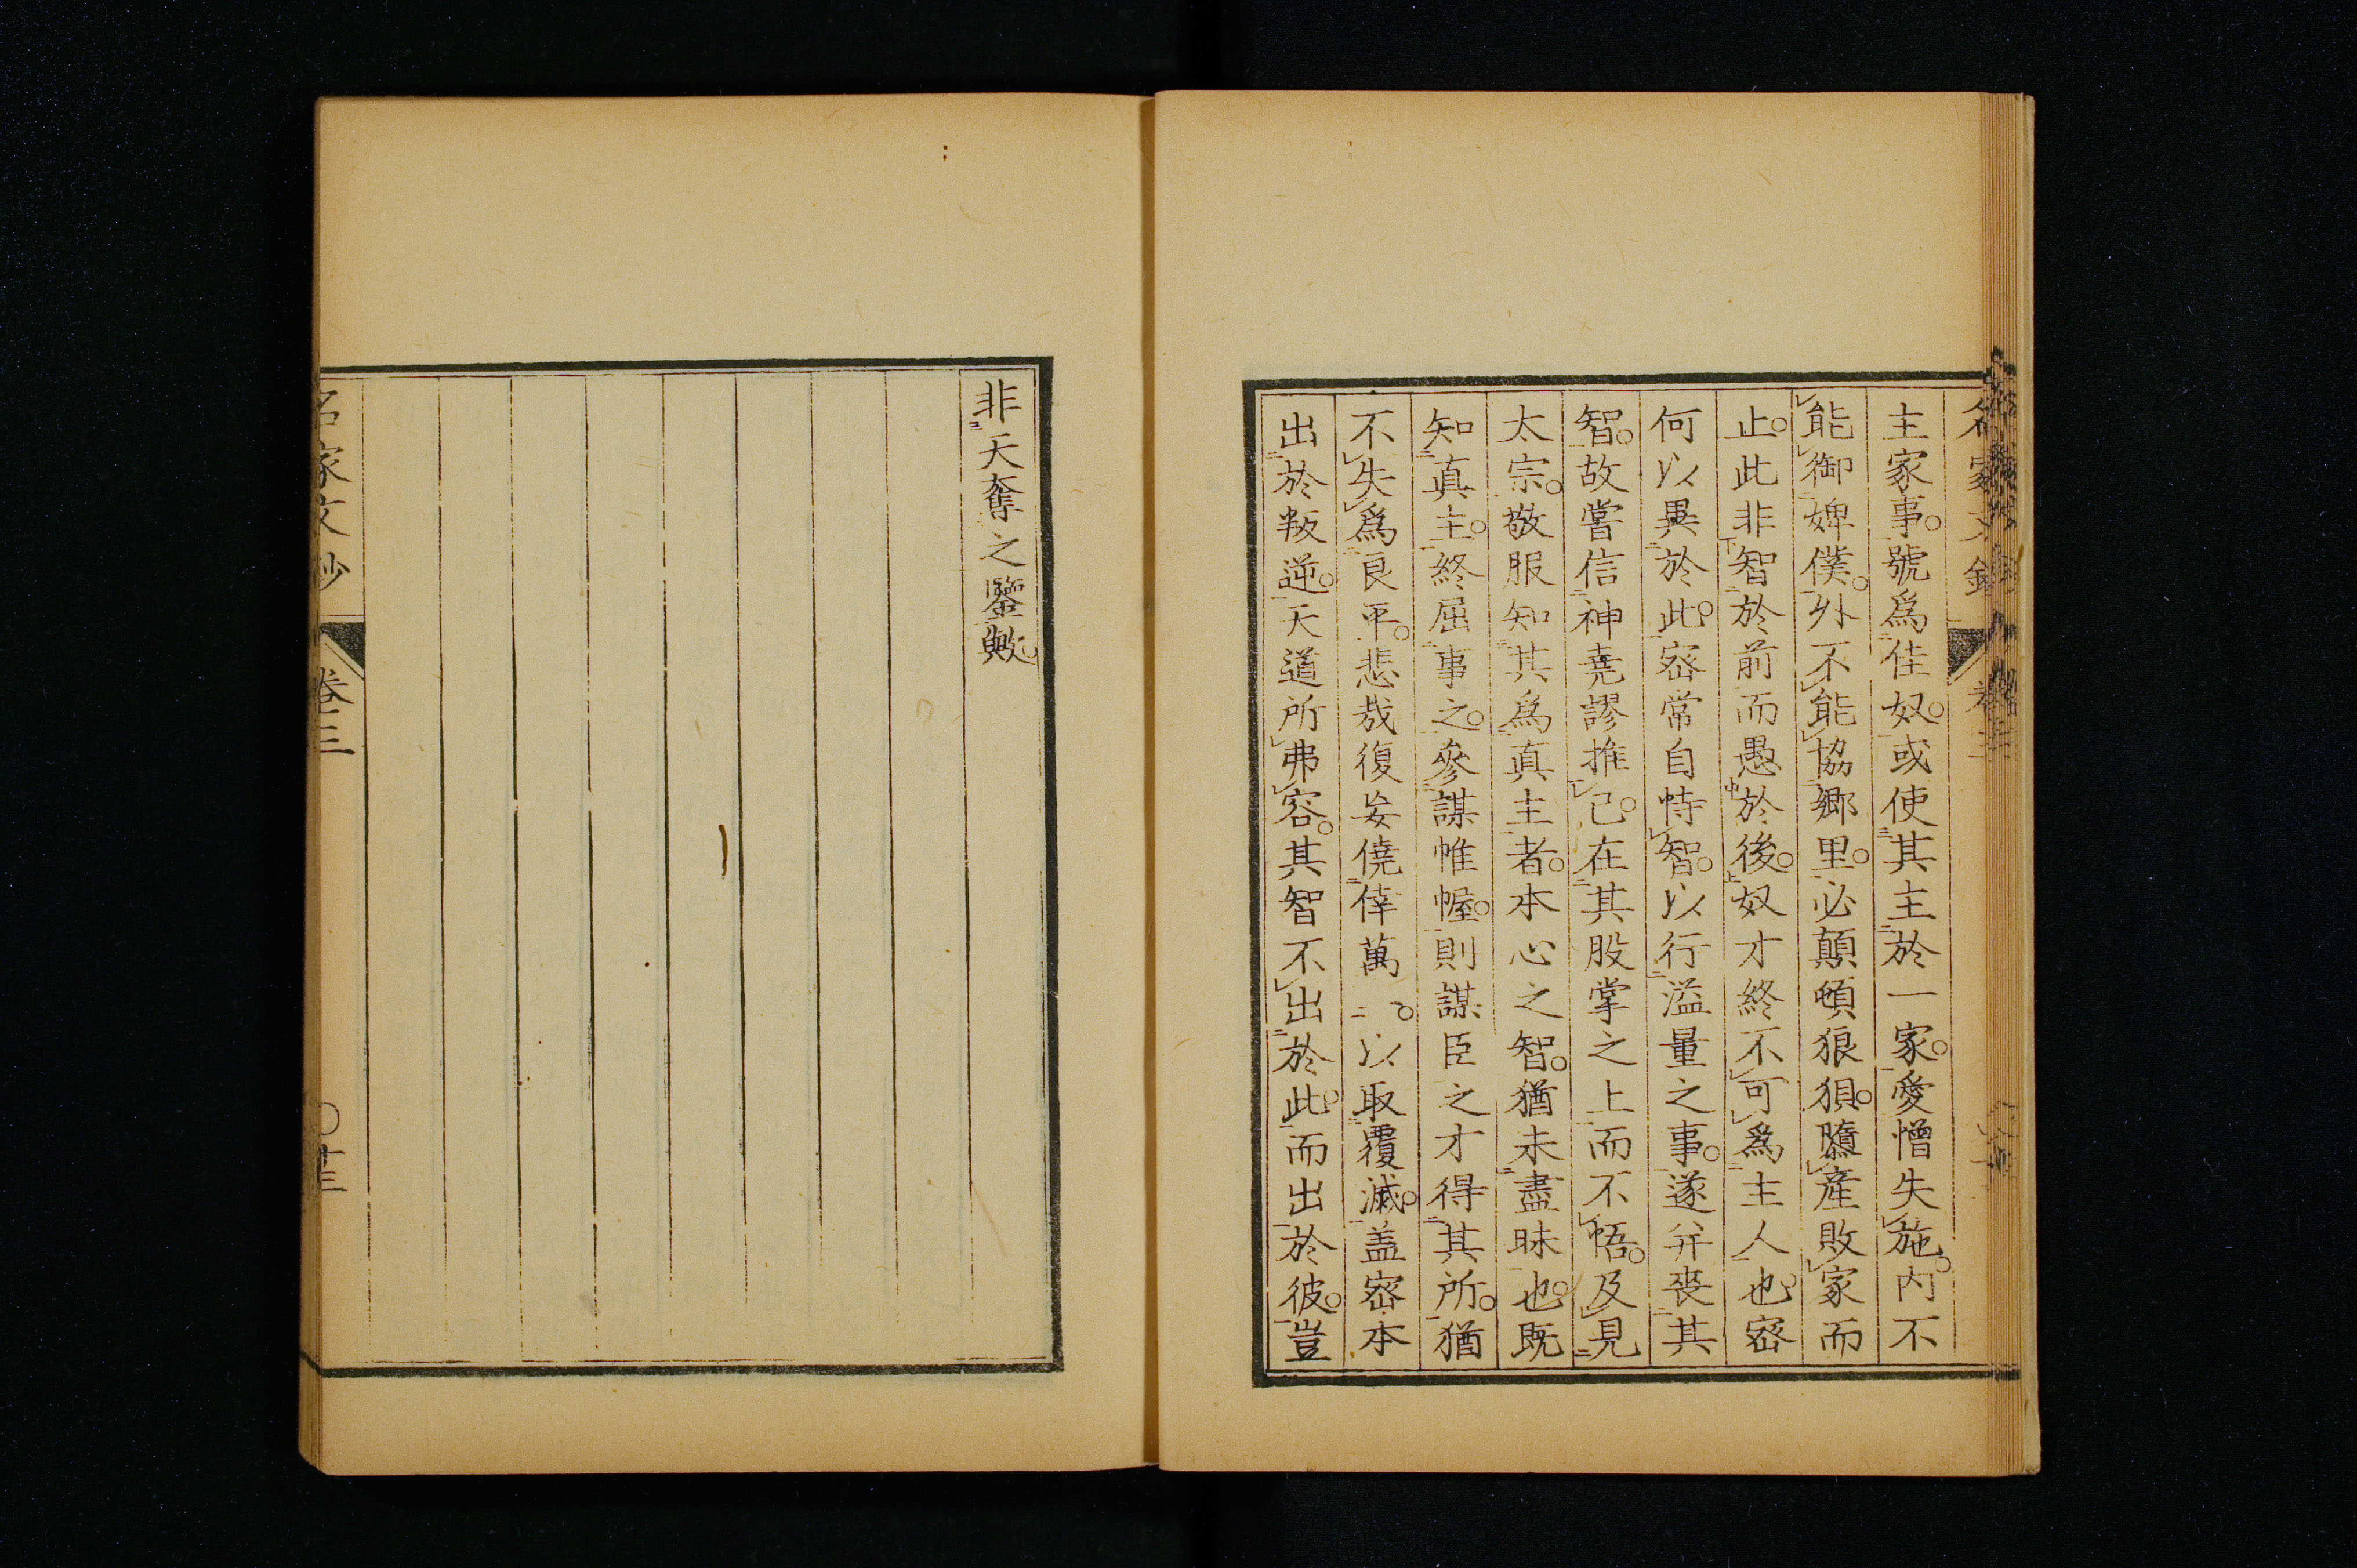 主家事。號爲佳奴。或使其主於一家。愛憎失施。内不
能御婢僕。外不能協鄉里。必顛頓狼狽。隳產敗家而
止。此非智於前而愚於後。奴才終不可爲主人也。宻
何以異於此。宻常自恃智。以行溢量之事。遂幷喪其
智。故嘗信神堯謬推己。在其股掌之上而不悟。及見
太宗。敬服知其爲真主者。本心之智。猶未盡昧也。既
知真主。終屈事之。參謀帷幄。則謀臣之才得其所。猶
不失爲良平。悲哉復妄僥倖萬一。以取覆滅。盖宻本
出於叛逆。天道所弗容。其智不出於此。而出於彼。豈
非天奪之鑒歟。
名家文鈔
卷三